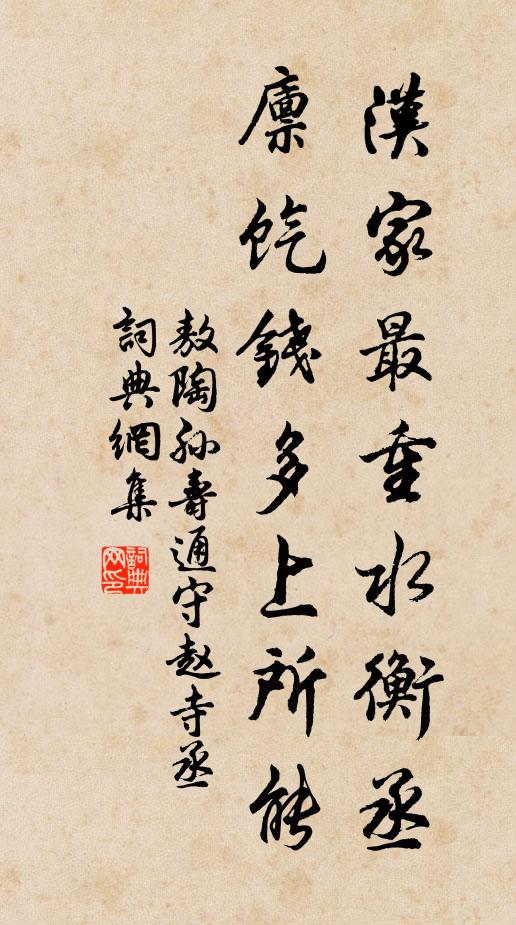 漢家最重水衡丞
廪飢錢多上所能
敖陶孙壽通守赵寺丞
詞典網集
詞典网印